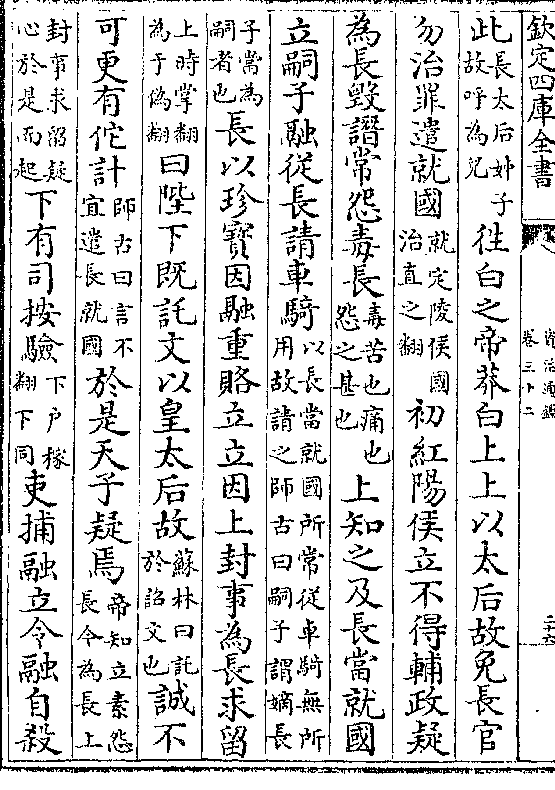 欽定四庫全書
資治通鑑
卷三十二
此長太后姊子故呼為兒往白之帝莽白上上以太后故免長官
勿治罪遣就國就定陵侯國治直之翻初紅陽侯立不得輔政疑
為長毀譖常怨毒長毒苦也痛也怨之甚也上知之及長當就國
立嗣子融從長請車騎以長當就國所常從車騎無所用故請之師古曰嗣子謂嫡長
子當為嗣者也長以珍寶因融重賂立立因上封事為長求留
上時掌翻為于偽翻曰陛下既託文以皇太后故蘇林曰託於詔文也誠不
可更有佗計師古曰言不宜遣長就國於是天子疑焉帝知立素怨長今為長上
封事求留疑心於是而起下有司按驗下戶稼翻下同吏捕融立令融自殺